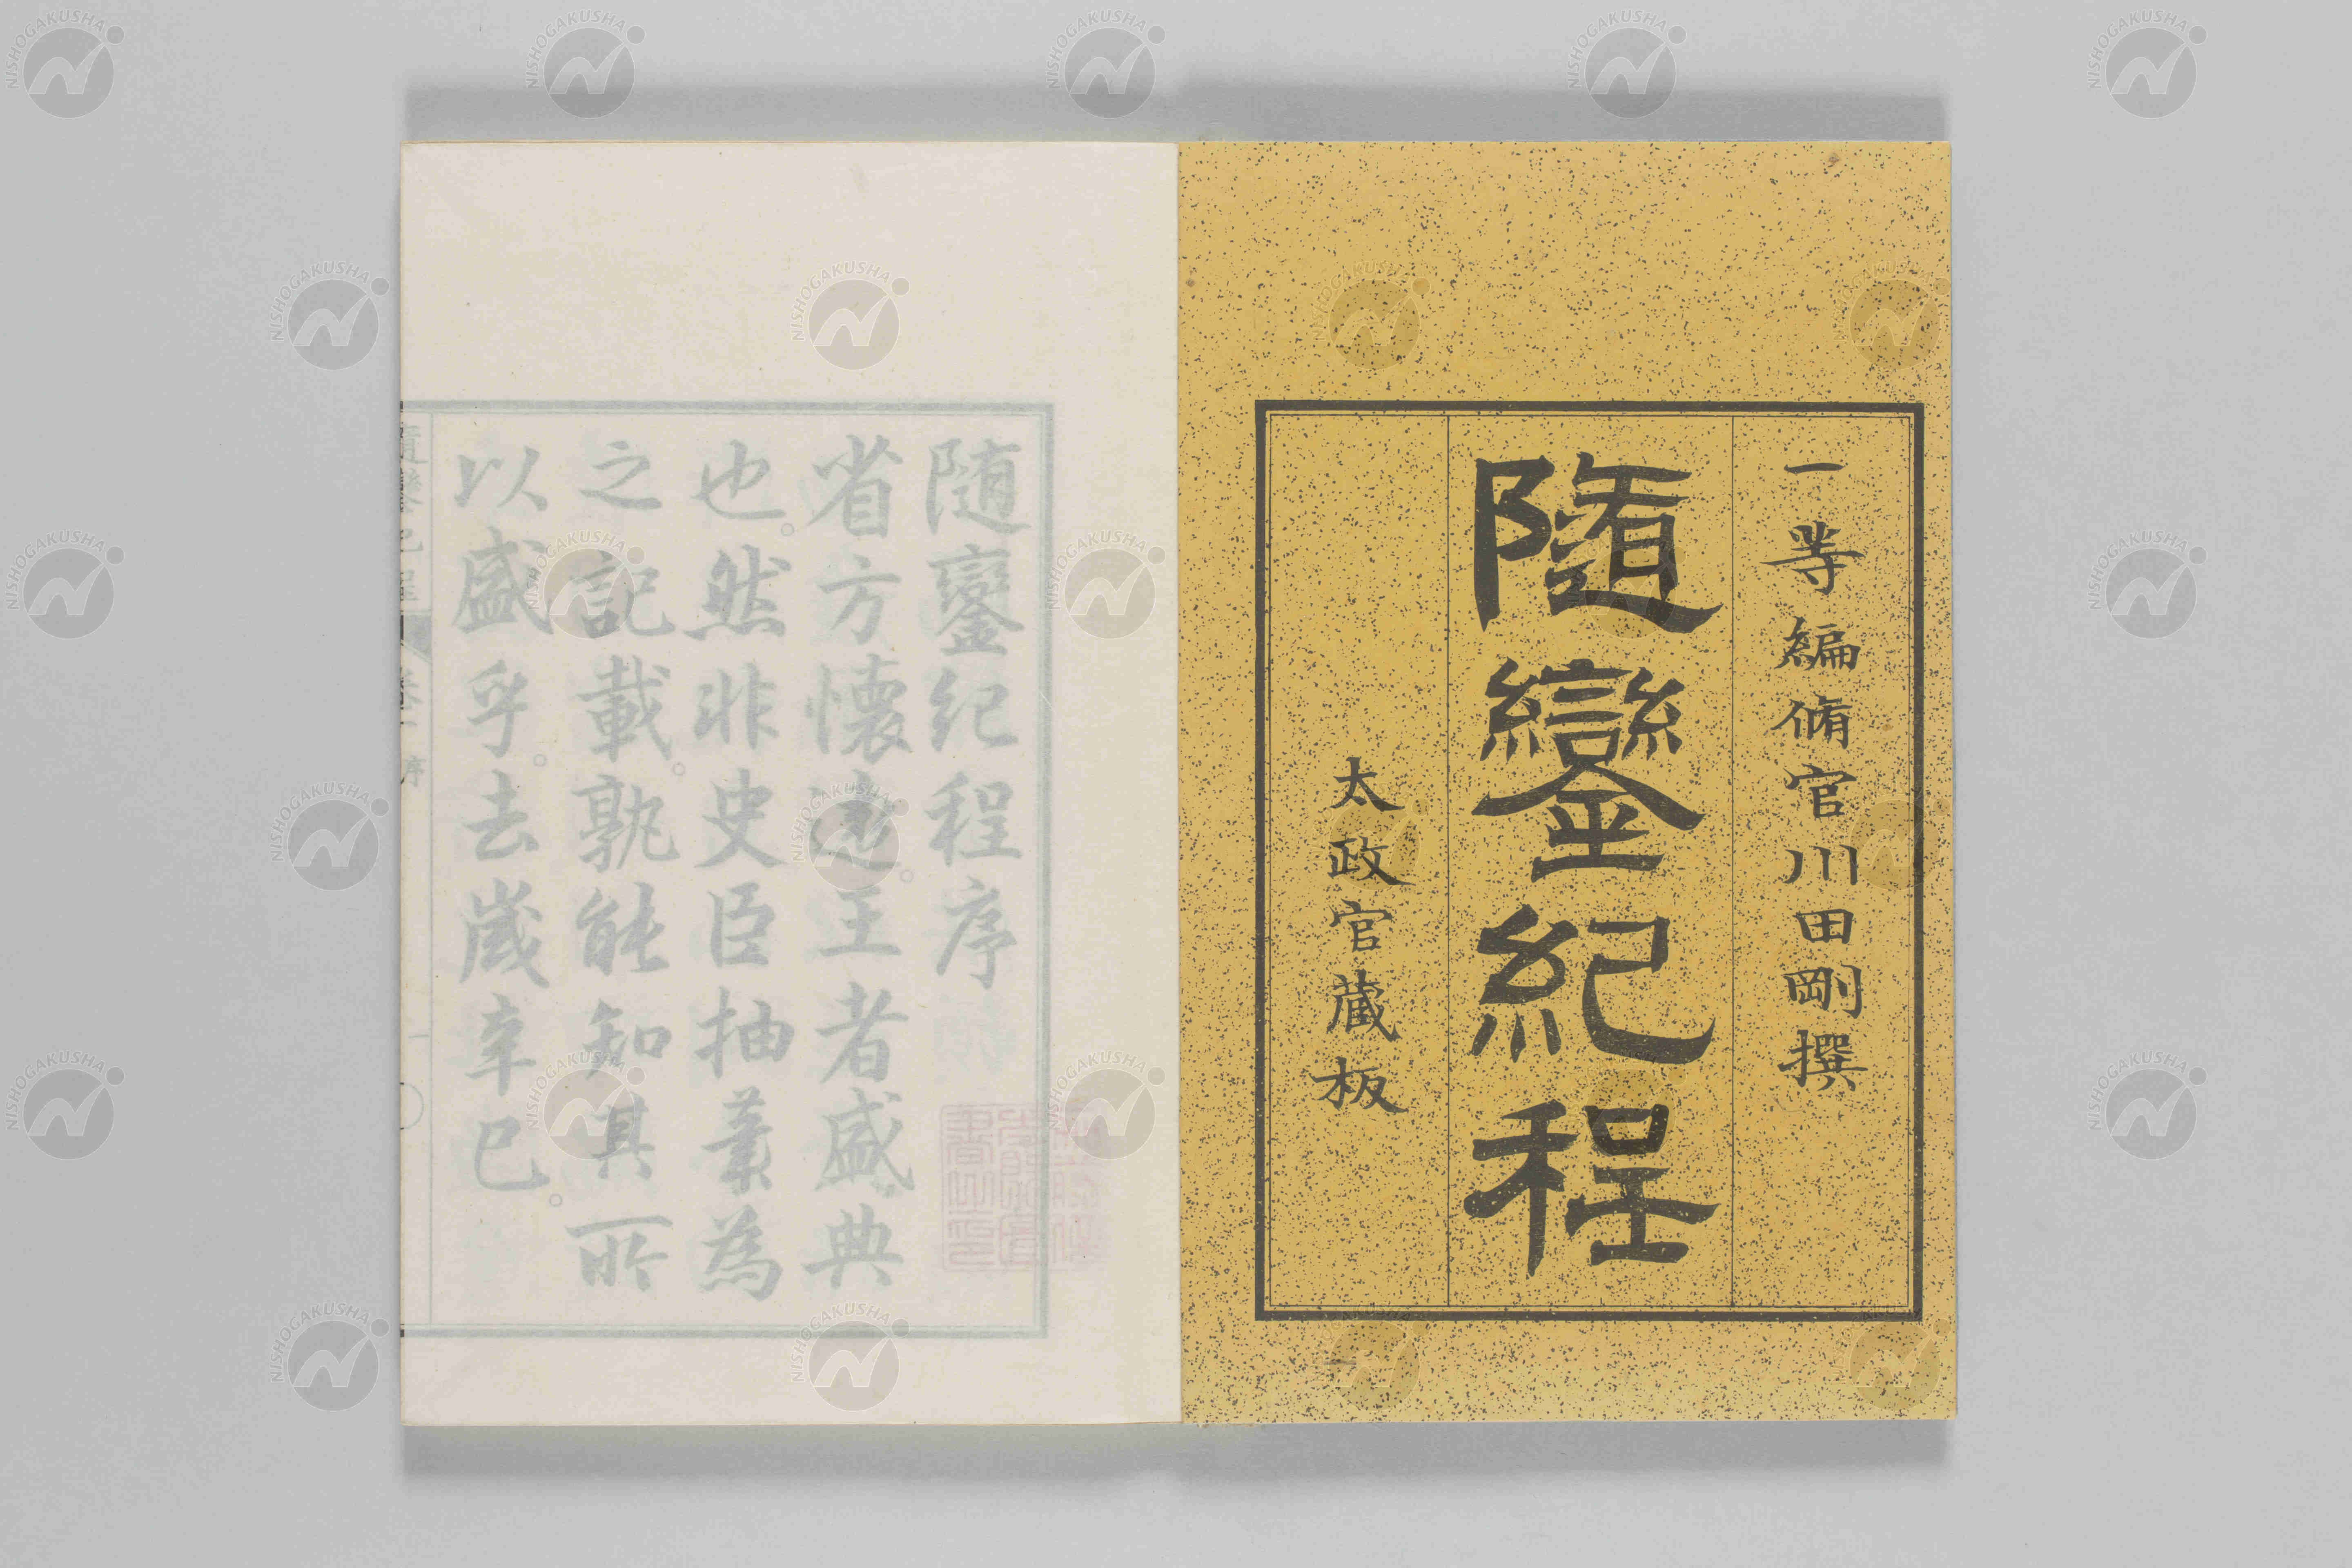 一等編脩官川田剛撰
隨鑾紀程
太政官蔵板
随鑾紀程序
省方懐迩王者盛典
也。然非史臣抽藁為
之記載。孰能知其所
以盛乎。去歳辛巳。
NISHOGAKUSHA